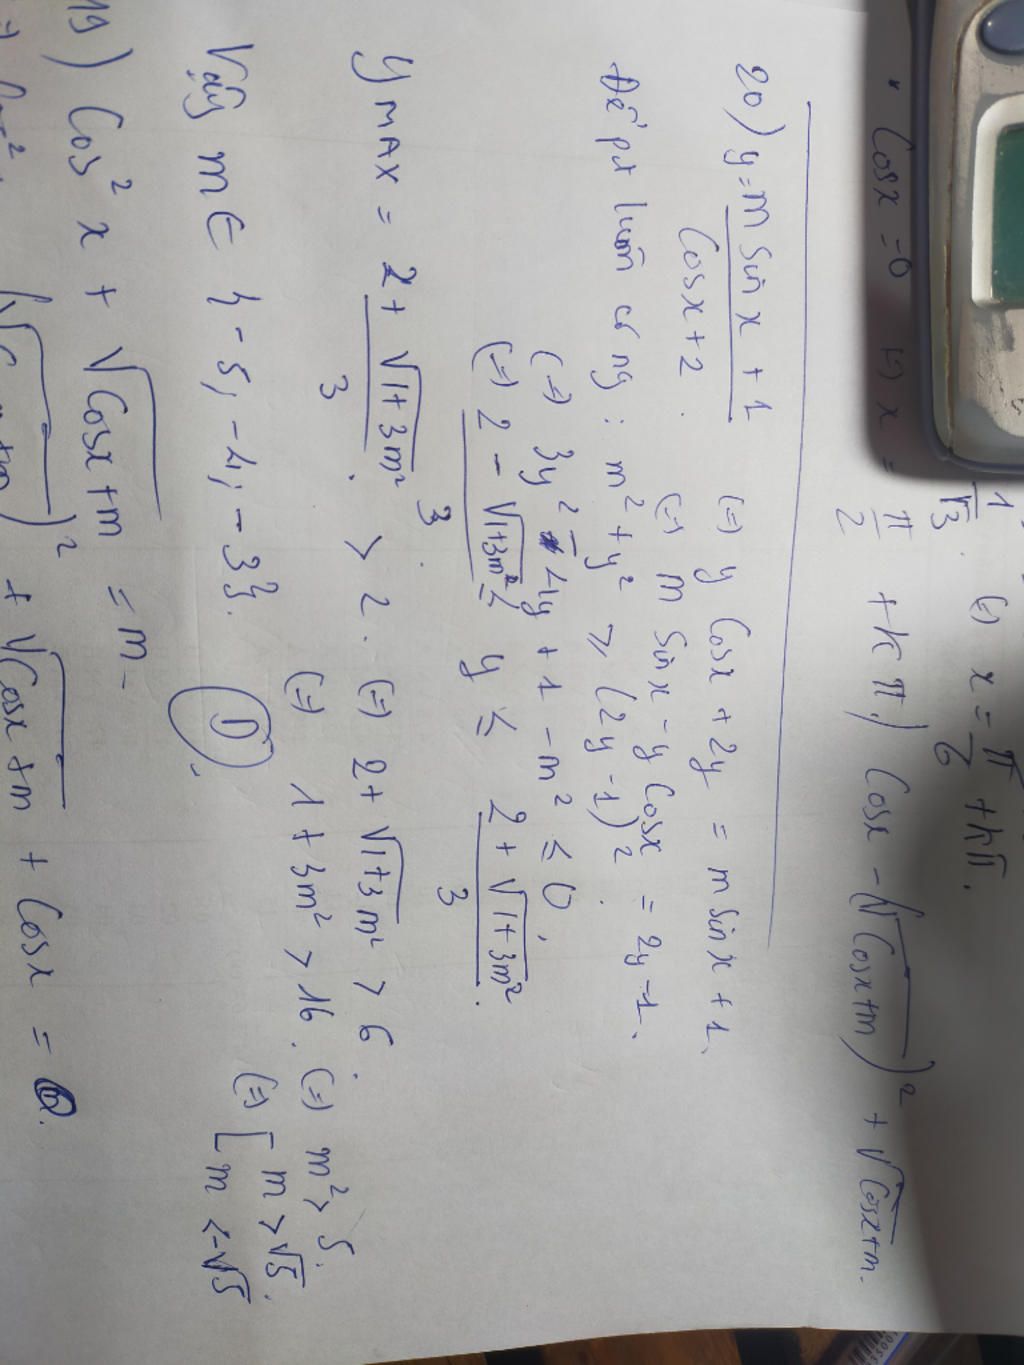 1/√3 . (=) x = π/6 + kπ.
" Cosx = 0 (=) x = π/2 + kπ / Cosx - (√Cosx+m)² + √Cosx+m.
20) y = (m sin x + 1)/(Cosx + 2) . (=) y Cosx + 2y = m sinx + 1.
(=) m sinx - y Cosx = 2y - 1.
Để pt luôn có ng : m² + y² ≥ (2y - 1)².
(=) 3y² - 4y + 1 - m² ≤ 0.
(=) (2 - √1+3m²)/3 ≤ y ≤ (2 + √1+3m²)/3.
y MAX = (2 + √1+3m²)/3 . > 2 . (=) 2 + √1+3m² > 6.
(=) 1 + 3m² > 16 . (=) m² > 5.
(=) [ m > √5.
m < -√5
Vậy m ∈ { -5, -4, -3}. D.
19) Cos² x + √Cosx + m = m.
+m)² + √Cosx + m + Cosx =